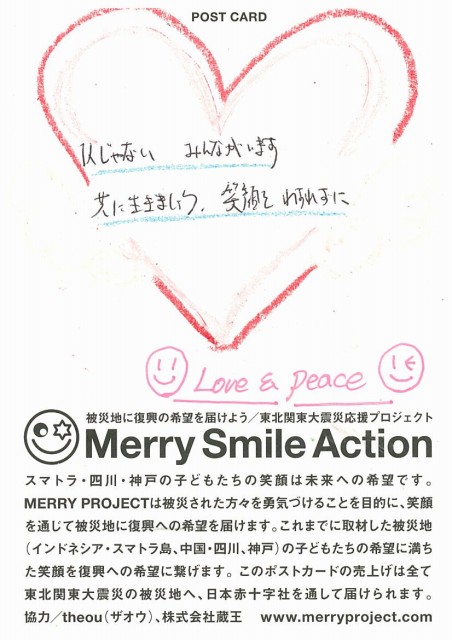 POST CARD
1人じゃない みんながいます
共に生きましょう、笑顔を わすれずに
Love & peace
被災地に復興の希望を届けよう／東北関東大震災応援プロジェクト
Merry Smile Action
スマトラ・四川・神戸の子どもたちの笑顔は未来への希望です。
MERRY PROJECTは被災された方々を勇気づけることを目的に、笑顔
を通じて被災地に復興への希望を届けます。これまでに取材した被災地
（インドネシア・スマトラ島、中国・四川、神戸）の子どもたちの希望に満ち
た笑顔を復興への希望に繋げます。このポストカードの売上げは全て
東北関東大震災の被災地へ、日本赤十字社を通して届けられます。
協力／theou（ザオウ）、株式会社蔵王 www.merryproject.com